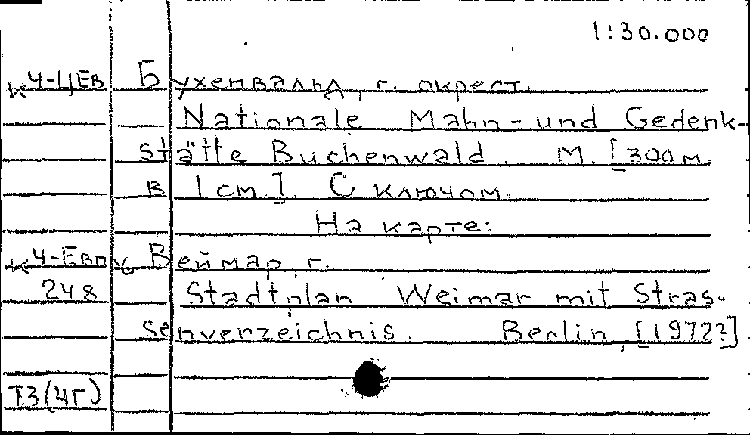 1:30.000
к4-ЦЕв Бухенвальд, г. окрест.
Nationale Mahn- und Gedenk-
stätte Buchenwald. М. [300м
в 1см]. С ключом.
На карте:
к4-Евп Веймар, г.
248 Stadtplan Weimar mit Stras-
senverzeichnis. Berlin, [1972?]
ТЗ(4Г)